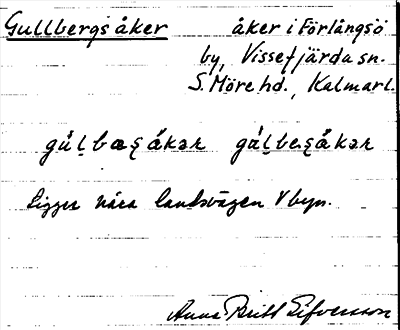 Gullbergs åker åker i Förlångsö
by, Vissefjärda sn.
S. Möre hd., Kalmar l.
gúl̥bæʂ åkər gál̥beʂ åkər
Ligger nära landsvägen V byn.
Anna Britt Sifversson